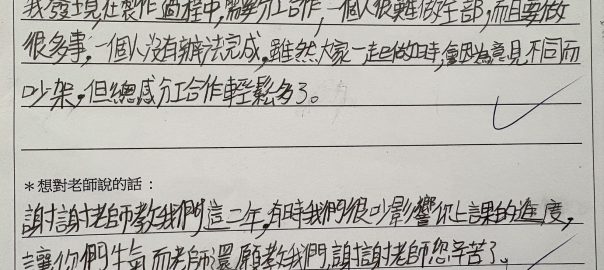 我發現在製作過程中,需要分工合作,一個人很難做全部,而且要做
很多事,一個人沒有辦法完成。雖然大家一起做時,會因為意見不同而
吵架,但總感分工合作輕鬆多了。
*想對老師說的話:
謝謝老師教我們這二年,有時我們很吵影響你上課的進度,
讓你們生氣而老師還願教我們,謝謝老師您辛苦了。